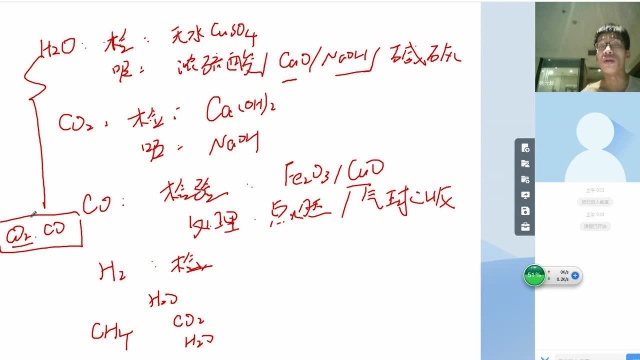 H₂O: 检: 无水CuSO4
吸: 浓硫酸/CaO/NaOH/碱石灰
CO₂: 检: Ca(OH)₂
吸: NaOH
CO: 检验: Fe₂O₃/CuO
处理: 点燃/气球收
CO₂ CO
H₂: 检
H₂O
CO₂
CH4
H₂O